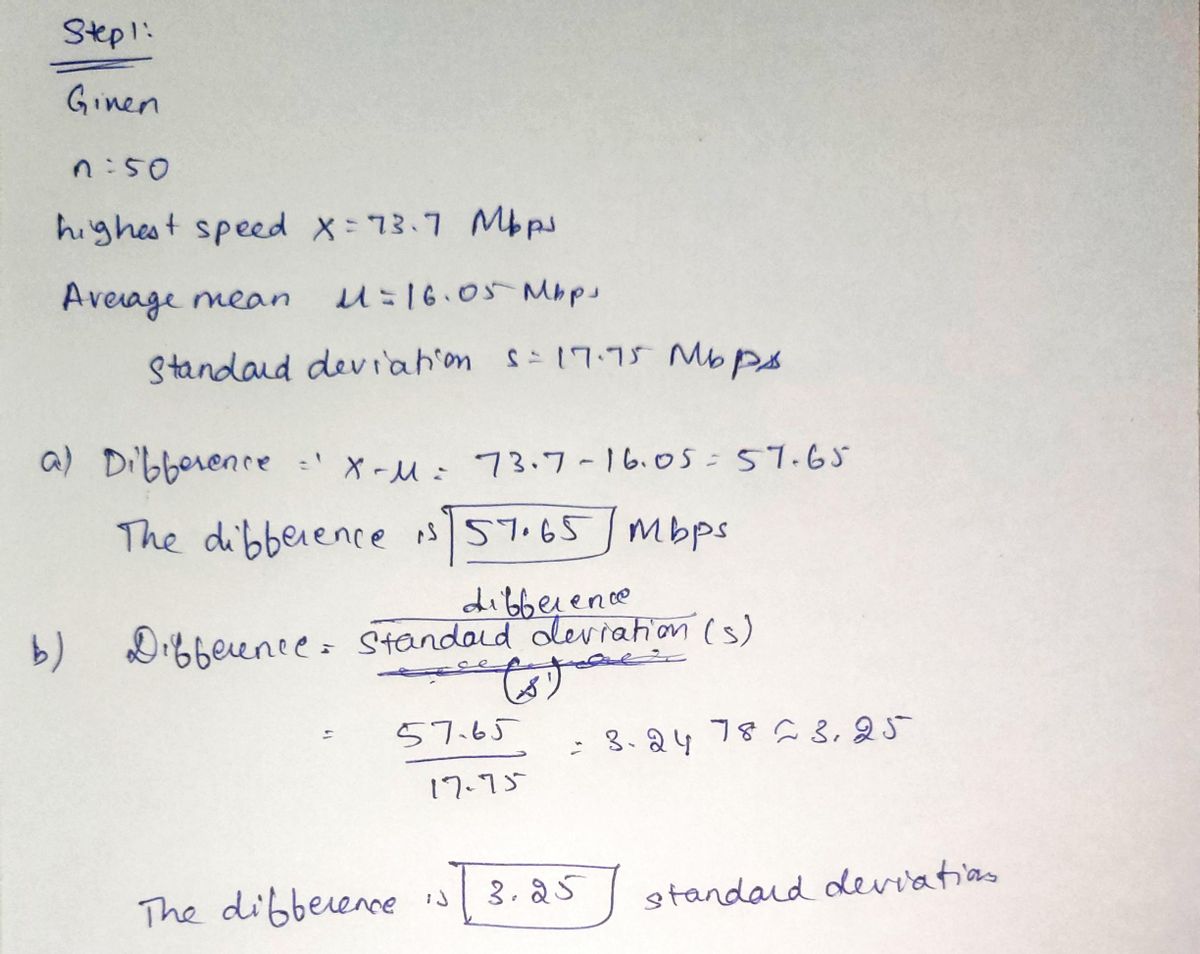 Step 1:
Given
n = 50
highest speed x = 73.7 Mbps
Average mean μ = 16.05 Mbps
Standard deviation s = 17.75 Mbps
a) Difference = x - μ = 73.7 - 16.05 = 57.65
The difference is 57.65 Mbps
difference
b) Difference = Standard deviation (s)
(s)
= 57.65 = 3.2478 ≈ 3.25
17.75
The difference is 3.25 standard deviations